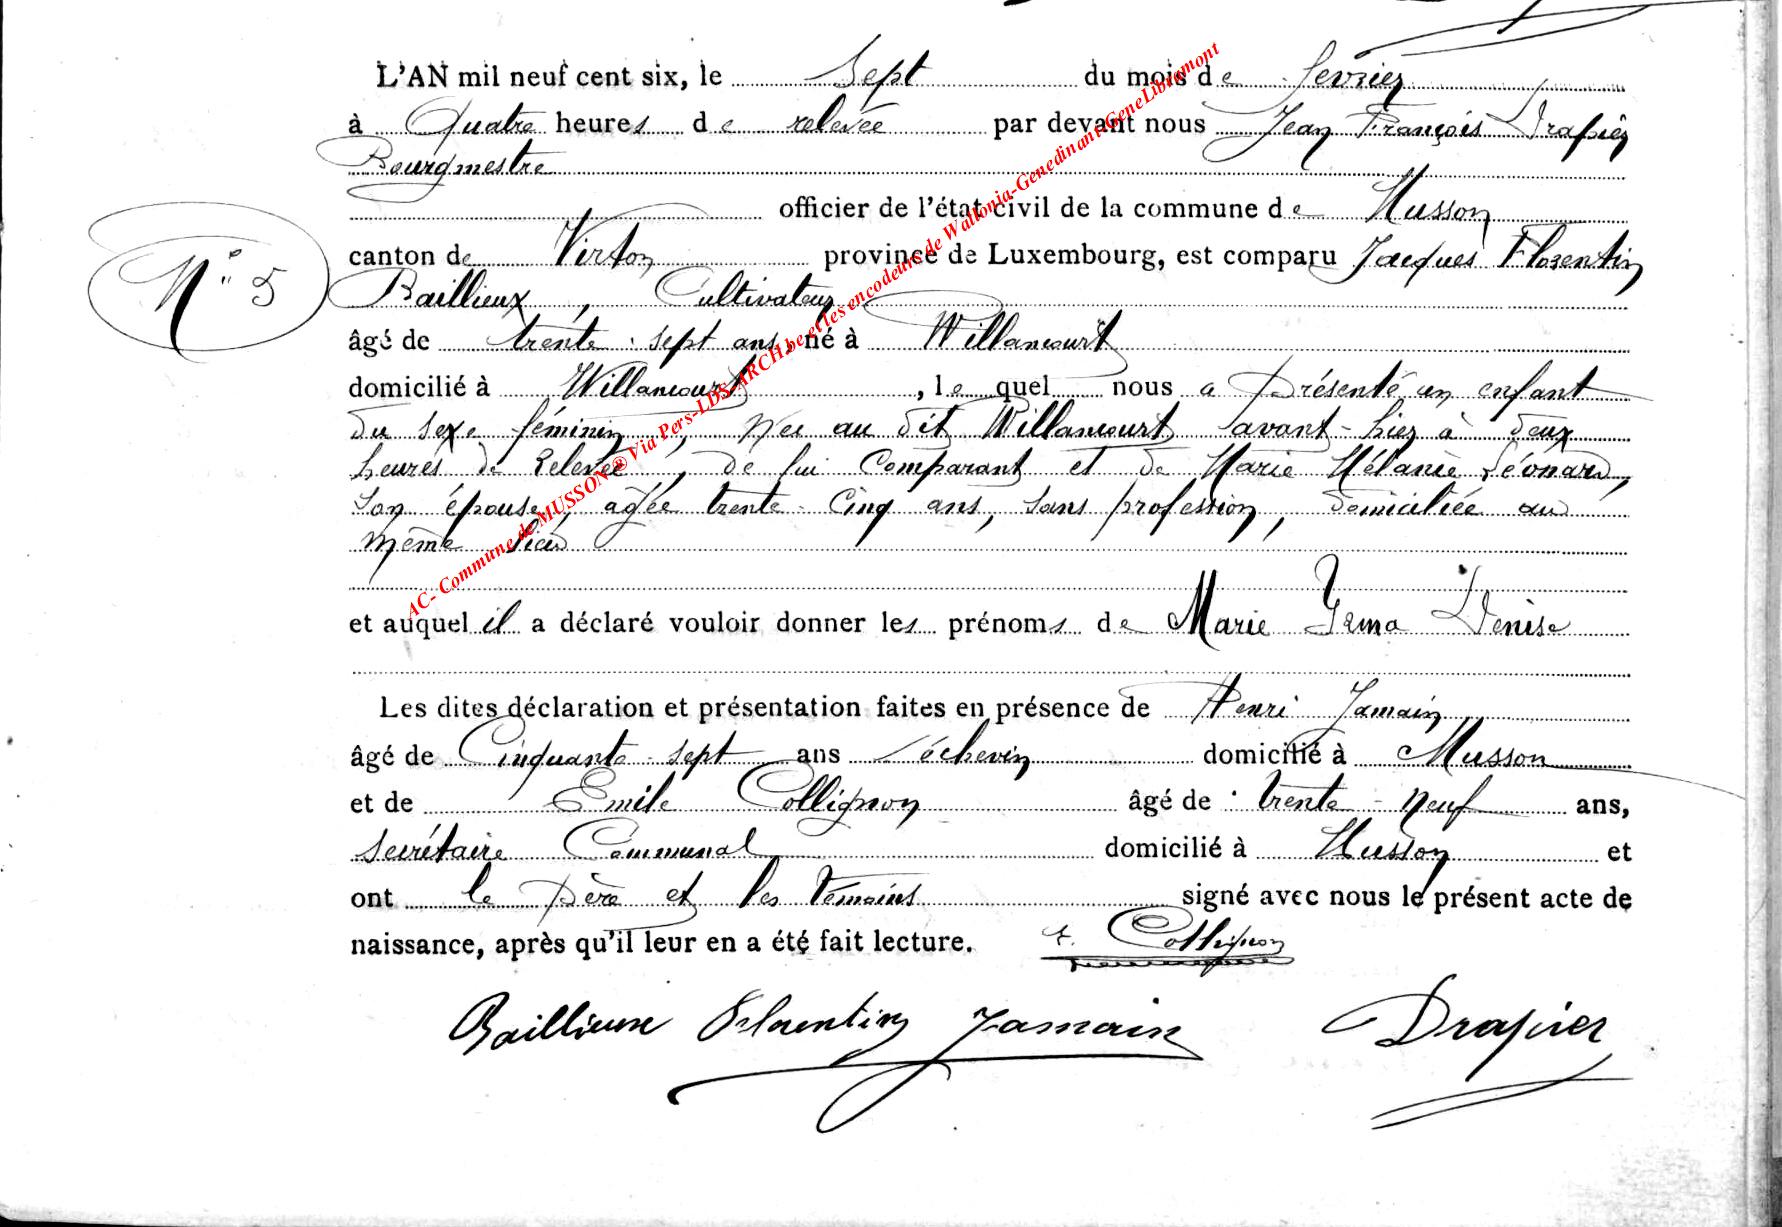 L'AN mil neuf cent six, le sept du mois de février
à quatre heures de relevée par devant nous Jean François Drapier
Bourgmestre
officier de l'état civil de la commune de Musson
canton de Virton province de Luxembourg, est comparu Jacques Florentin
N° 5
Baillieux, Cultivateur
âgé de trente-sept ans, né à Willancourt
domicilié à Willancourt, lequel nous a présenté un enfant
du sexe féminin, née au dit Willancourt avant-hier à deux
heures de relevée, de lui comparant et de Marie Mélanie Léonard,
son épouse, agée trente-cinq ans, sans profession, domiciliée au
même lieu
et auquel il a déclaré vouloir donner les prénoms de Marie Irma Denise
Les dites déclaration et présentation faites en présence de Henri Jamain
âgé de Cinquante-sept ans échevin domicilié à Musson
et de Emile Collignon âgé de trente-neuf ans,
secrétaire Communal domicilié à Musson et
ont le père et les témoins signé avec nous le présent acte de
naissance, après qu'il leur en a été fait lecture. Collignon
Baillieux Florentin Jamain Drapier
AC- Commune de MUSSON ® Via Pers-LDS-ARCH.be et les encodeurs de Wallonia-Genedinant-GeneLibramont